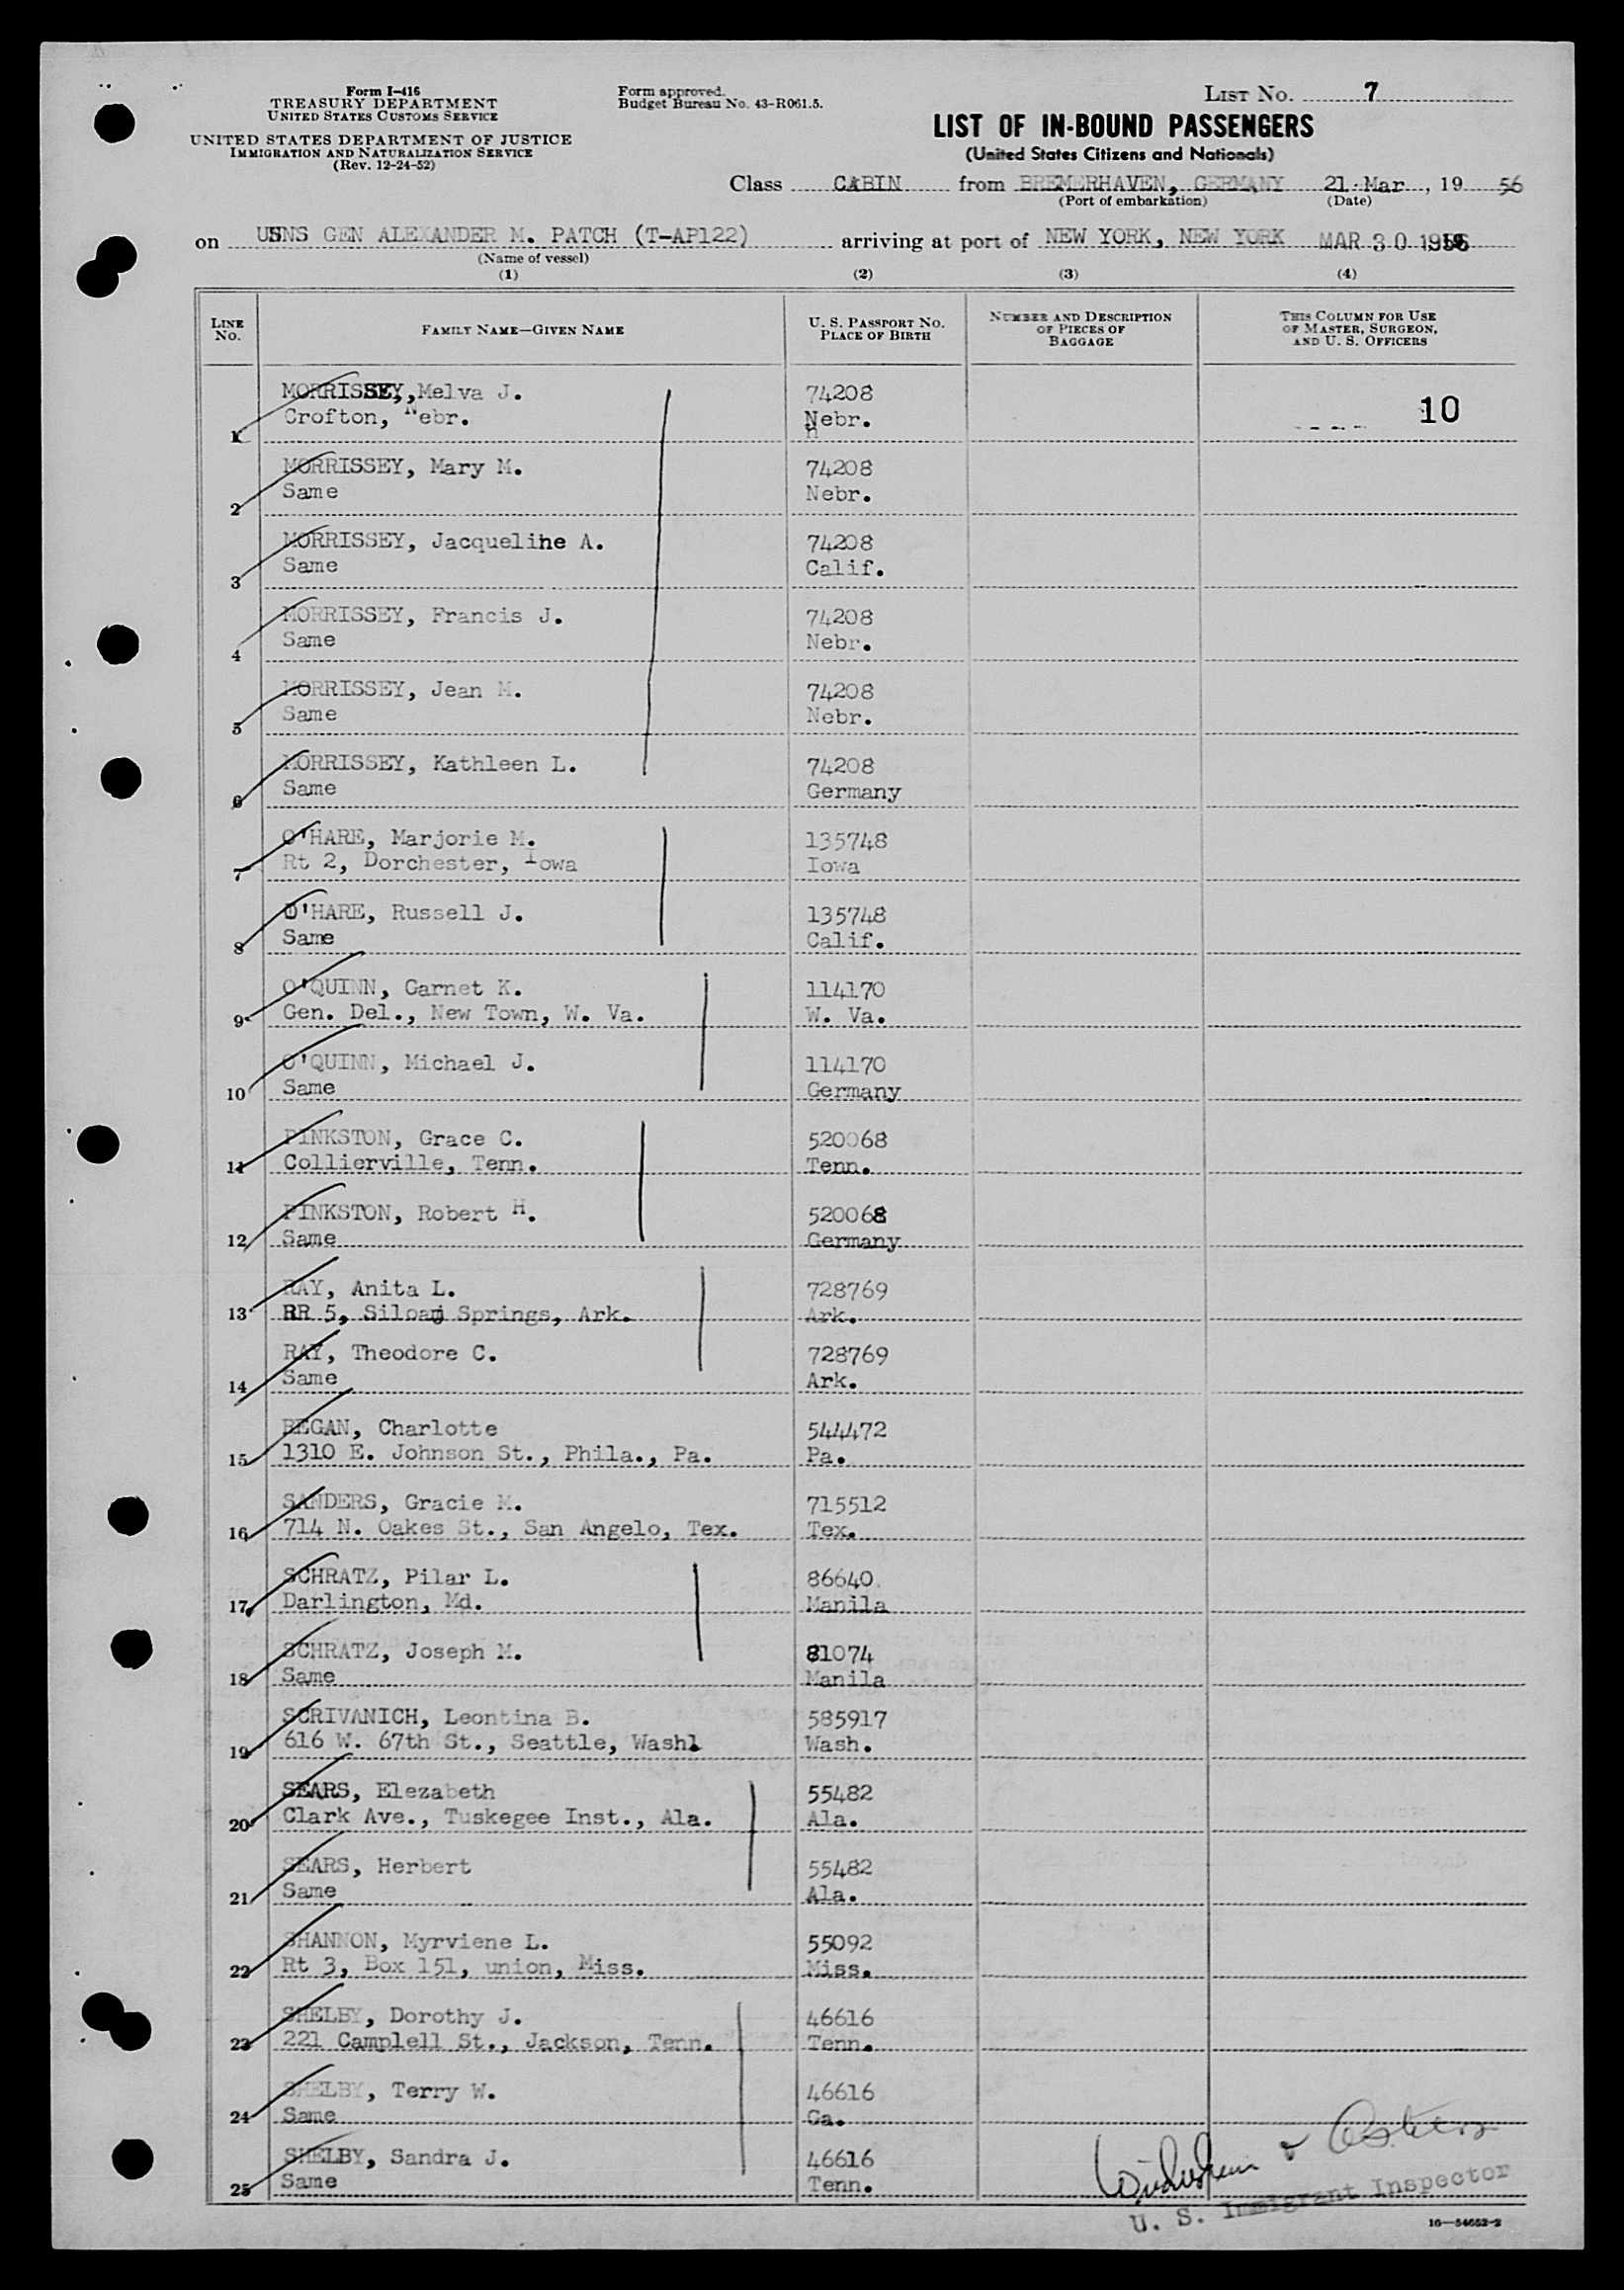 Form I-416
TREASURY DEPARTMENT
UNITED STATES CUSTOMS SERVICE
UNITED STATES DEPARTMENT OF JUSTICE
IMMIGRATION AND NATURALIZATION SERVICE
(Rev. 12-24-52)
Form approved.
Budget Bureau No. 43-R061.5.
LIST NO. 7
LIST OF IN-BOUND PASSENGERS
(United States Citizens and Nationals)
Class CABIN from BREMERHAVEN, GERMANY 21 Mar, 19 56
(Port of embarkation) (Date)
on USNS GEN ALEXANDER M. PATCH (T-AP122) arriving at port of NEW YORK, NEW YORK MAR 30 1956
(Name of vessel)
(1) (2) (3) (4)
LINE NO.
FAMILY NAME—GIVEN NAME
U. S. PASSPORT NO.
PLACE OF BIRTH
NUMBER AND DESCRIPTION
OF PIECES OF
BAGGAGE
THIS COLUMN FOR USE
OF MASTER, SURGEON,
AND U. S. OFFICERS
MORRISSEY,,Melva J. 74208
1 Crofton, Nebr. Nebr. 10
MORRISSEY, Mary M. 74208
2 Same Nebr.
MORRISSEY, Jacqueline A. 74208
3 Same Calif.
MORRISSEY, Francis J. 74208
4 Same Nebr.
MORRISSEY, Jean M. 74208
5 Same Nebr.
MORRISSEY, Kathleen L. 74208
6 Same Germany
O'HARE, Marjorie M. 135748
7 Rt 2, Dorchester, Iowa Iowa
O'HARE, Russell J. 135748
8 Same Calif.
O'QUINN, Garnet K. 114170
9 Gen. Del., New Town, W. Va. W. Va.
O'QUINN, Michael J. 114170
10 Same Germany
PINKSTON, Grace C. 520068
11 Collierville, Tenn. Tenn.
PINKSTON, Robert H. 520068
12 Same Germany
RAY, Anita L. 728769
13 RR 5, Siloam Springs, Ark. Ark.
RAY, Theodore C. 728769
14 Same Ark.
REGAN, Charlotte 544472
15 1310 E. Johnson St., Phila., Pa. Pa.
SANDERS, Gracie M. 715512
16 714 N. Oakes St., San Angelo, Tex. Tex.
SCHRATZ, Pilar L. 86640
17 Darlington, Md. Manila
SCHRATZ, Joseph M. 81074
18 Same Manila
SCRIVANICH, Leontina B. 585917
19 616 W. 67th St., Seattle, Wash. Wash.
SEARS, Elezabeth 55482
20 Clark Ave., Tuskegee Inst., Ala. Ala.
SEARS, Herbert 55482
21 Same Ala.
SHANNON, Myrviene L. 55092
22 Rt 3, Box 151, union, Miss. Miss.
SHELBY, Dorothy J. 46616
23 221 Camplell St., Jackson, Tenn. Tenn.
SHELBY, Terry W. 46616
24 Same Ga.
SHELBY, Sandra J. 46616
25 Same Tenn.
U. S. Immigrant Inspector
16—54652-2